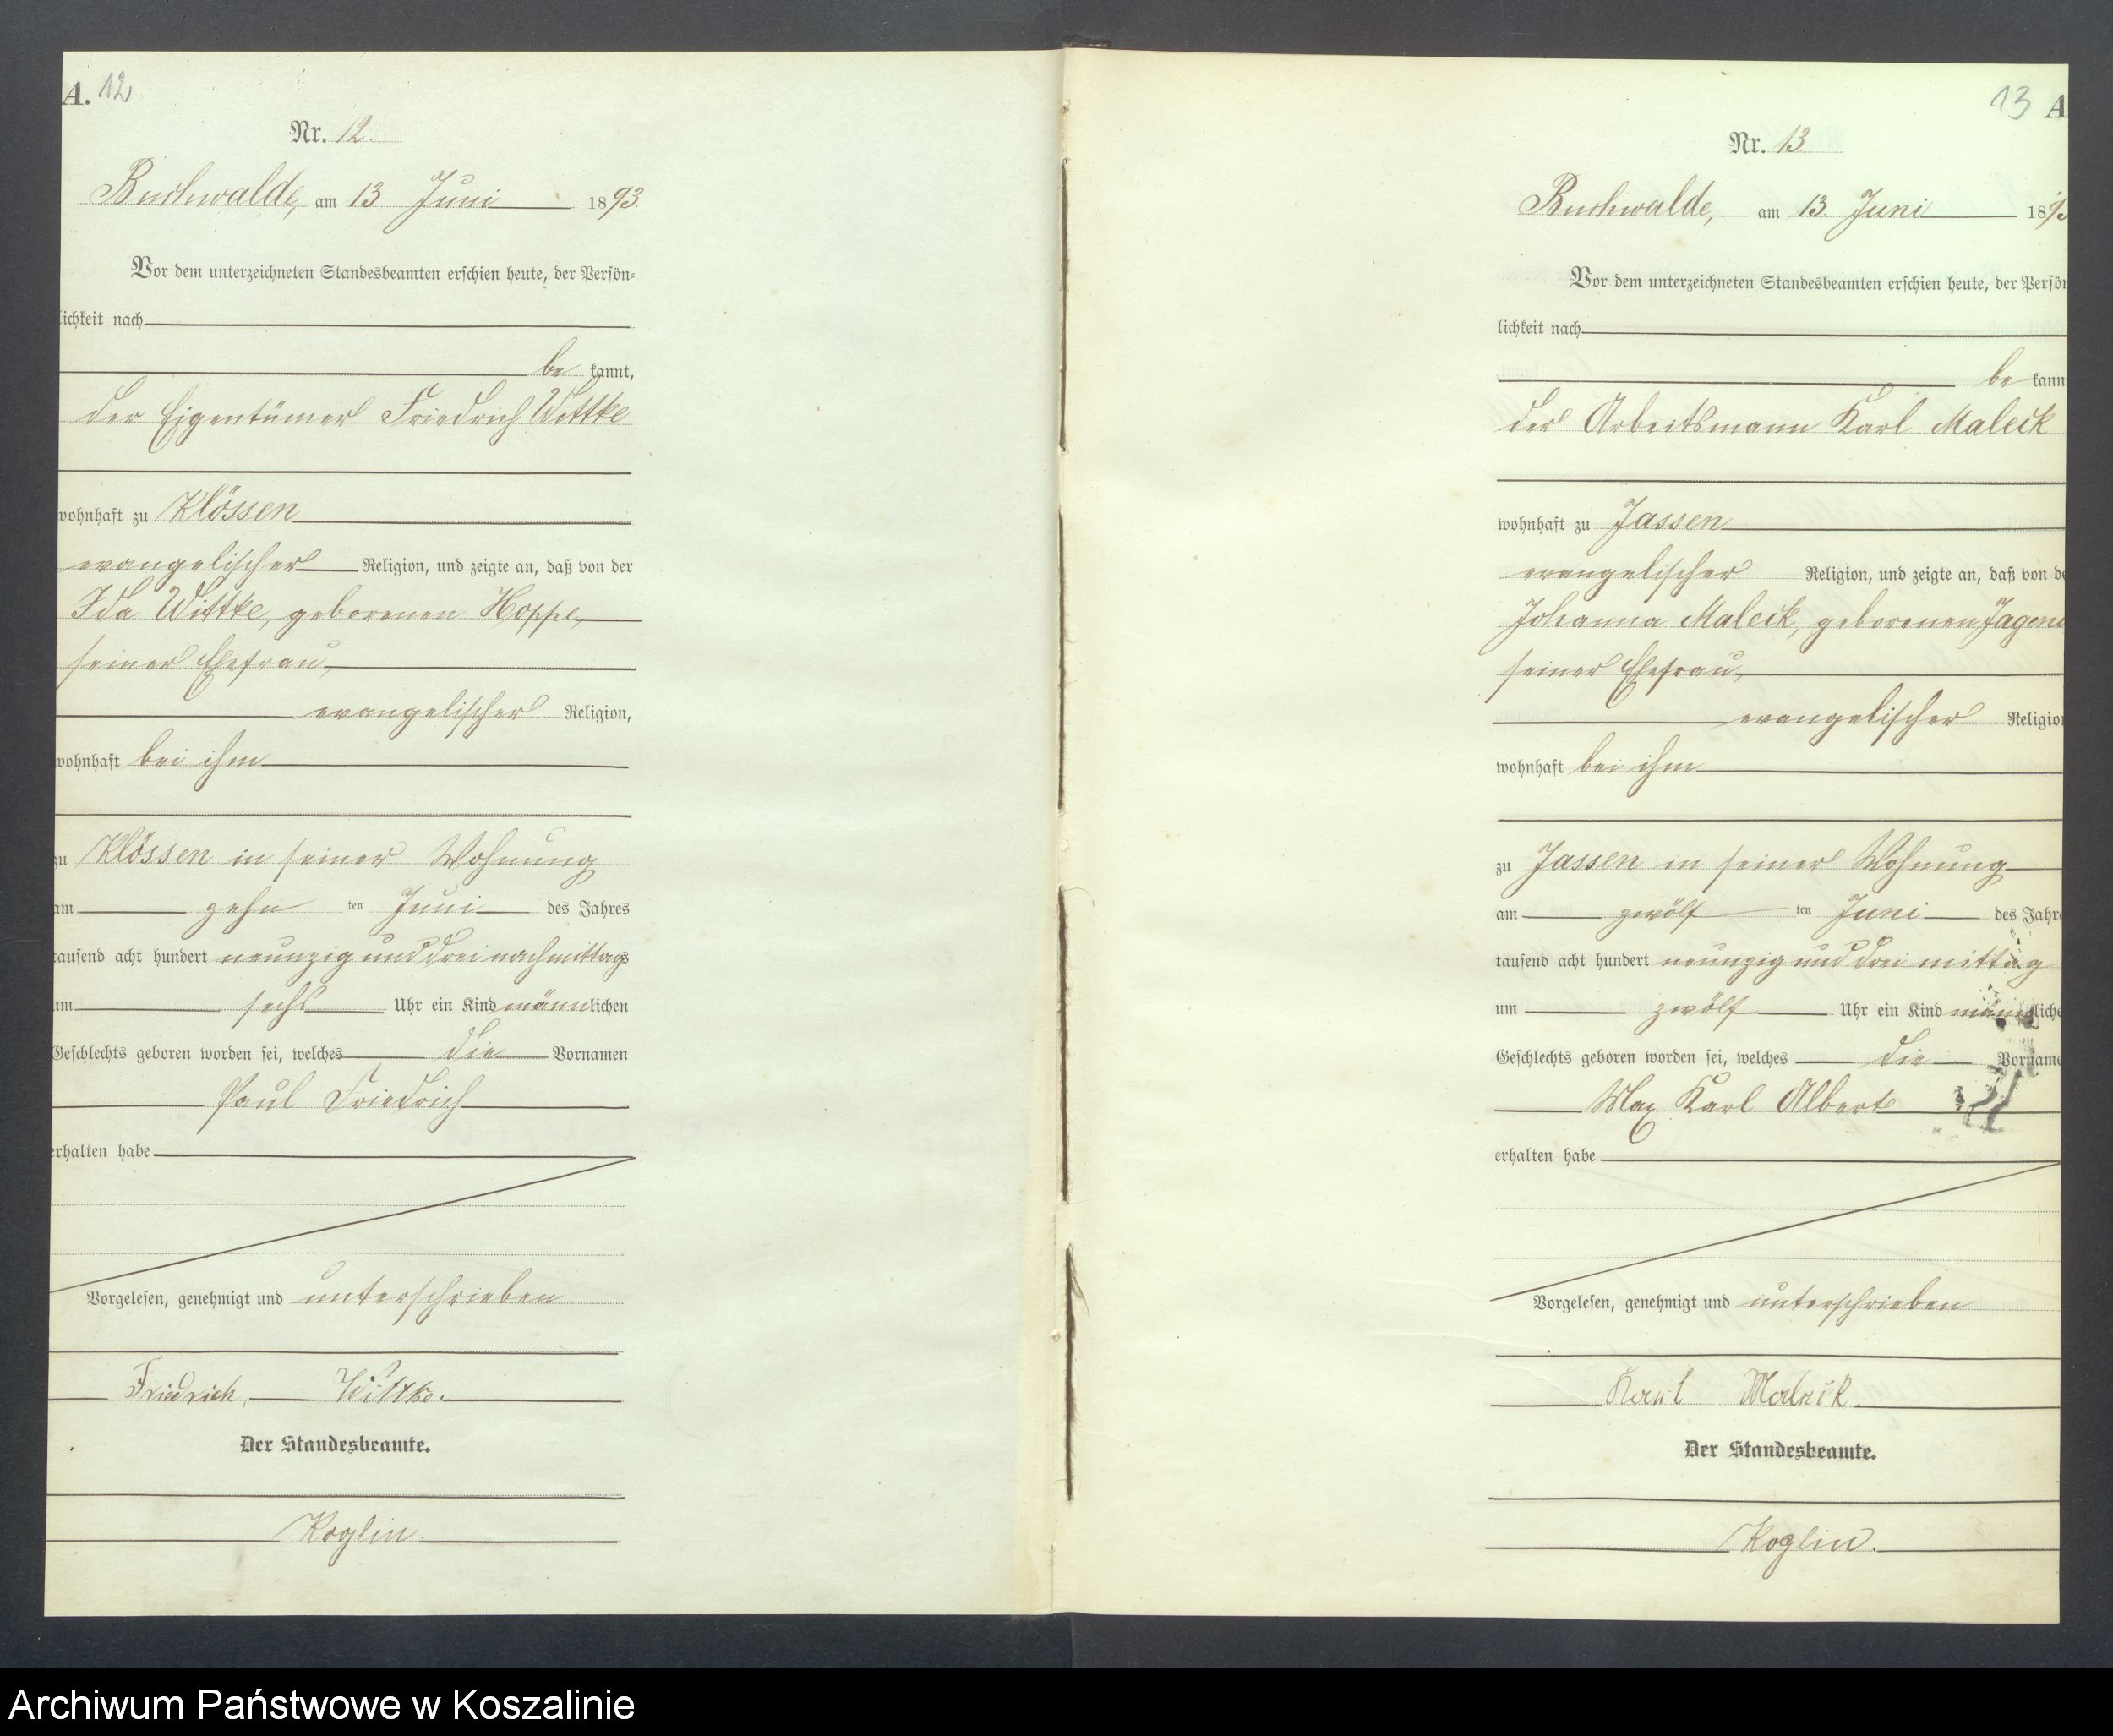 A. 12
Nr. 12.
Buchwalde, am 13 Juni 1893.
Vor dem unterzeichneten Standesbeamten erschien heute, der Persön-
lichkeit nach
be kannt,
der Eigentümer Friedrich Wittke
wohnhaft zu Klössen
evangelischer Religion, und zeigte an, daß von der
Ida Wittke, geborenen Hoppe,
seiner Ehefrau,
evangelischer Religion,
wohnhaft bei ihm
zu Klössen in seiner Wohnung
am zehn ten Juni des Jahres
tausend acht hundert neunzig und drei nachmittags
um sechs Uhr ein Kind männlichen
Geschlechts geboren worden sei, welches die Vornamen
Paul Friedrich
erhalten habe
Vorgelesen, genehmigt und unterschrieben
Friedrich Wittke.
Der Standesbeamte.
Koglin.
13 A
Nr. 13
Buchwalde, am 13. Juni 189
Vor dem unterzeichneten Standesbeamten erschien heute, der Persön
lichkeit nach
be kann
der Arbeitsmann Karl Maleik
wohnhaft zu Jassen
evangelischer Religion, und zeigte an, daß von de
Johanna Maleik, geborenen
seiner Ehefrau,
evangelischer Religion
wohnhaft bei ihm
zu Jassen in seiner Wohnung
am zwölf ten Juni des Jahre
tausend acht hundert neunzig und drei mittag
um zwölf Uhr ein Kind männliche
Geschlechts geboren worden sei, welches die Vorname
Max Karl Albert
erhalten habe
Vorgelesen, genehmigt und unterschrieben
Karl Maleik.
Der Standesbeamte.
Koglin.
Archiwum Państwowe w Koszalinie